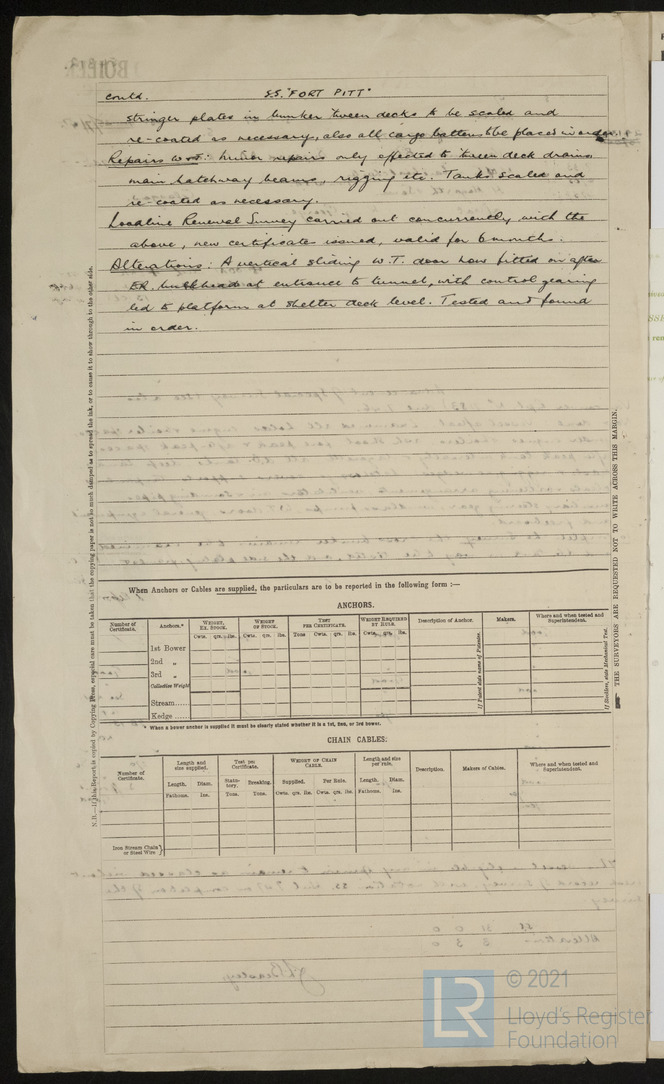 contd. S.S. "FORT PITT"
stringer plates in bunker tween decks to be scaled and
re-coated as necessary, also all cargo battens to be placed in order.
Repairs W&T: minor repairs only effected to tween deck drains
main hatchway beams, rigging etc. Tanks scaled and
re-coated as necessary.
Loadline Renewal Survey carried out concurrently with the
above, new certificates issued, valid for 6 months.
Alterations: A vertical sliding W.T. door now fitted on after
E.R. bulkhead at entrance to tunnel, with control gearing
led to platform at shelter deck level. Tested and found
in order.
N.B.—If this Report is copied by Copying Press, especial care must be taken that the copying paper is not so much damped as to spread the ink, or to cause it to show through to the other side.
THE SURVEYORS ARE REQUESTED NOT TO WRITE ACROSS THIS MARGIN.
When Anchors or Cables are supplied, the particulars are to be reported in the following form :—
ANCHORS.
Number of Certificate. Anchors.* WEIGHT, EX. STOCK. WEIGHT OF STOCK. TEST PER CERTIFICATE. WEIGHT REQUIRED BY RULE. Description of Anchor. Makers. Where and when tested and Superintendent.
Cwts. qrs. lbs. Cwt. qrs. lbs. Tons Cwt. qrs. lbs. Cwts. qrs. lbs.
1st Bower
2nd „
3rd „
Collective Weight
Stream
Kedge
If Patent state name of Patentee.
If Stockless, state Mechanical Test.
* When a bower anchor is supplied it must be clearly stated whether it is a 1st, 2nd, or 3rd bower.
CHAIN CABLES.
Number of Certificate. Length and size supplied. Test per Certificate. WEIGHT OF CHAIN CABLE. Length and size per rule. Description. Makers of Cables. Where and when tested and Superintendent.
Length. Diam. Statutory. Breaking. Supplied. Per Rule. Length. Diam.
Fathoms. Ins. Tons. Tons. Cwts. qrs. lbs. Cwts. qrs. lbs. Fathoms. Ins.
Iron Stream Chain or Steel Wire
LR
© 2021
Lloyd's Register
Foundation